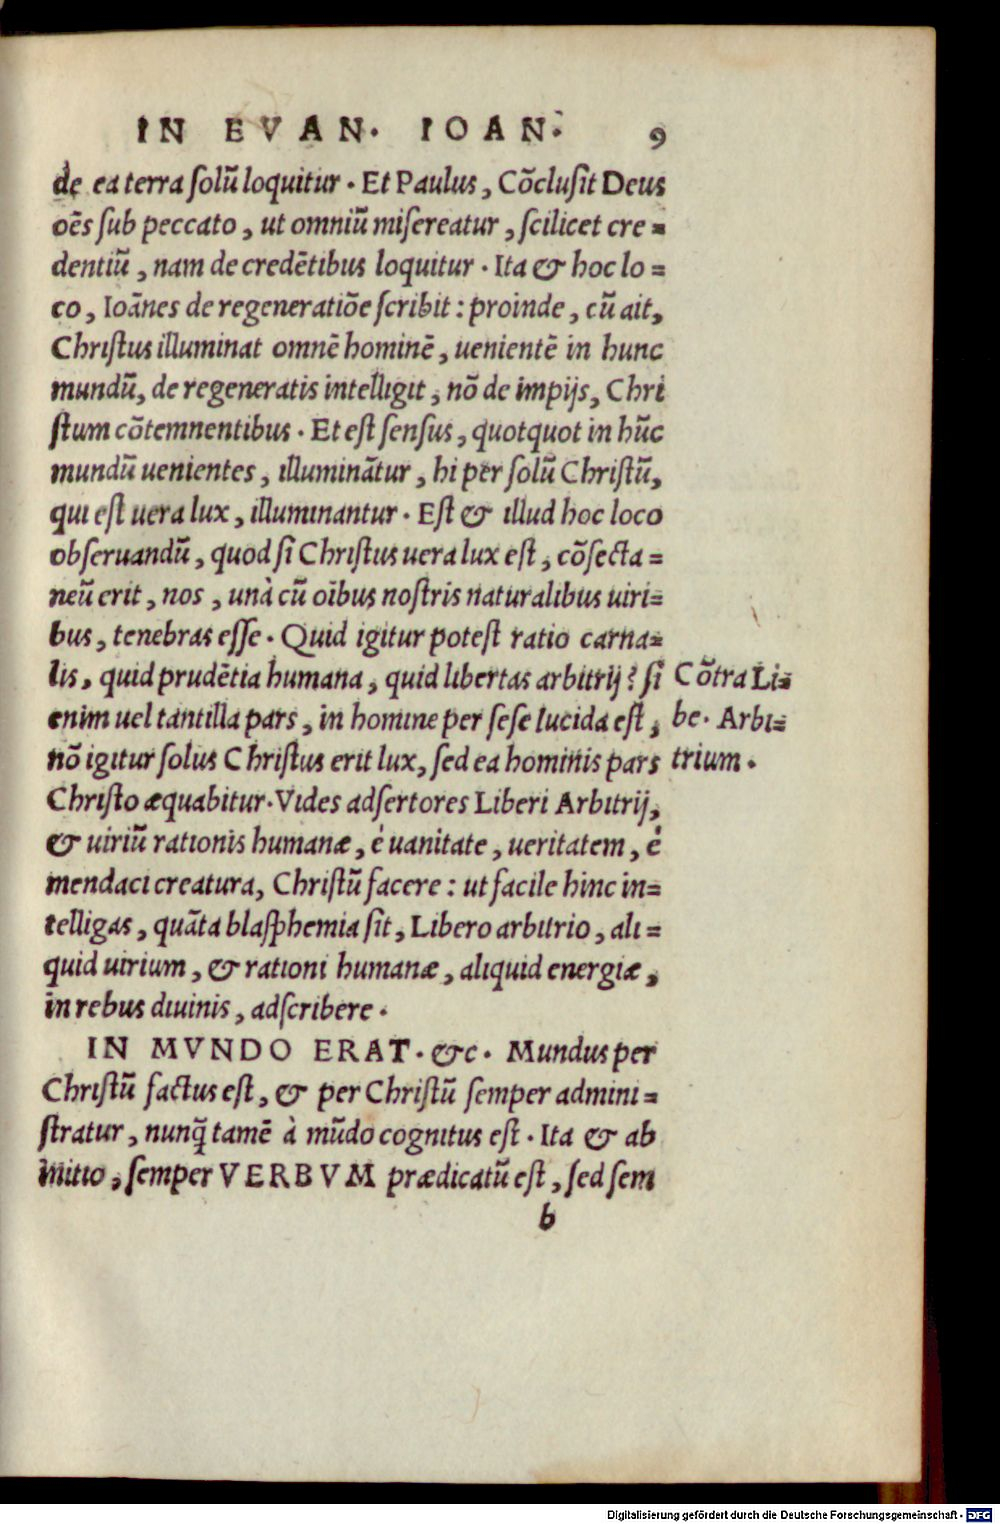 IN EVAN. IOAN. 9
de ea terra solũ loquitur. Et Paulus, Cõclusit Deus
oẽs sub peccato, ut omniũ misereatur, scilicet cre=
dentiũ, nam de credẽtibus loquitur. Ita & hoc lo=
co, Ioãnes de regeneratiõe scribit: proinde, cũ ait,
Christus illuminat omnẽ hominẽ, uenientẽ in hunc
mundũ, de regeneratis intelligit, nõ de impijs, Chri
stum cõtemnentibus. Et est sensus, quotquot in hũc
mundũ uenientes, illuminãtur, hi per solũ Christũ,
qui est uera lux, illuminantur. Est & illud hoc loco
obseruandũ, quod si Christus uera lux est, cõsecta=
neũ erit, nos, unà cũ oĩbus nostris naturalibus uiri=
bus, tenebras esse. Quid igitur potest ratio carna=
lis, quid prudẽtia humana, quid libertas arbitrij? si
enim uel tantilla pars, in homine per sese lucida est,
nõ igitur solus Christus erit lux, sed ea hominis pars
Christo æquabitur. Vides adsertores Liberi Arbitrij,
& uiriũ rationis humanæ, è uanitate, ueritatem, è
mendaci creatura, Christũ facere: ut facile hinc in=
telligas, quãta blasphemia sit, Libero arbitrio, ali=
quid uirium, & rationi humanæ, aliquid energiæ,
in rebus diuinis, adscribere.
IN MVNDO ERAT. &c. Mundus per
Christũ factus est, & per Christũ semper admini=
stratur, nunq̃ tamẽ à mũdo cognitus est. Ita & ab
initio, semper VERBVM prædicatũ est, sed sem
b
Cõtra Li=
be. Arbi=
trium.
Digitalisierung gefördert durch die Deutsche Forschungsgemeinschaft - DFG